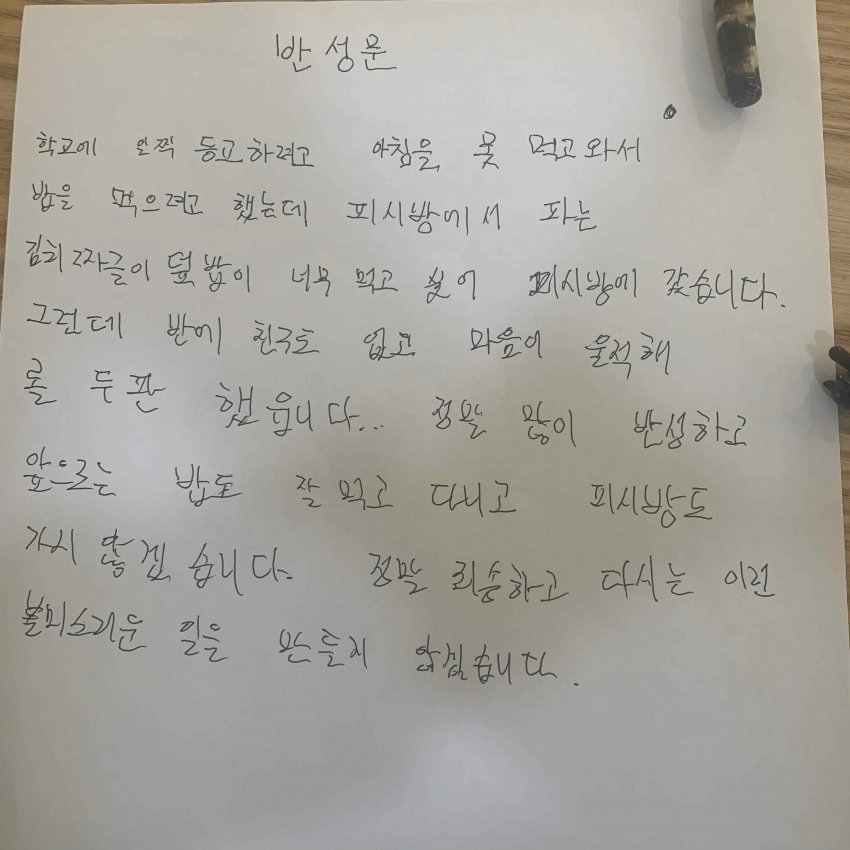 반성문
학교에 일찍 등교하려고 아침을 못 먹고 와서
밥을 먹으려고 했는데 피시방에서 파는
김치짜글이 덮밥이 너무 먹고 싶어 피시방에 갔습니다.
그런데 반에 친구도 없고 마음이 울적해
롤 두 판 했습니다... 정말 많이 반성하고
앞으로는 밥도 잘 먹고 다니고 피시방도
가지 않겠습니다. 정말 죄송하고 다시는 이런
불미스러운 일을 만들지 않겠습니다.